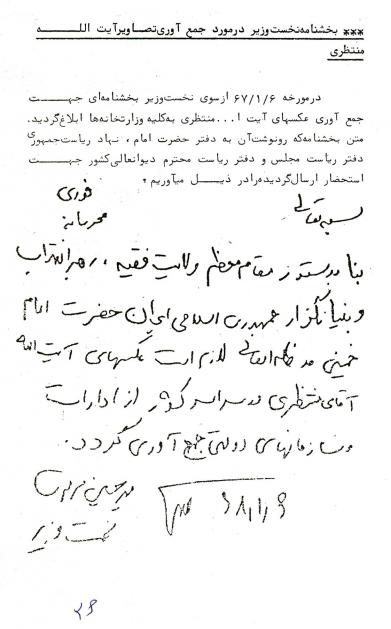 *** بخشنامه نخست‌وزیر درمورد جمع آوری تصاویر آیت اللـــه
منتظری
درمورخه ۶۷/۱/۶ ازسوی نخست‌وزیر بخشنامه‌ای جهـــت
جمع آوری عکسهای آیت ا...منتظری به‌کلیه وزارتخانه‌ها ابلاغ‌گردید.
متن بخشنامه‌که رونوشت‌آن به دفتر حضرت امام ، نهاد ریاست‌جمهوری
دفتر ریاست مجلس و دفتر ریاست محترم دیوانعالی‌کشور جهـــت
استحضار ارسال‌گردیده‌رادر ذیـــل میآوریم :
فوری
محرمانه
بسمه تعالی
بنا بدستور مقام معظم ولایت فقیه ، رهبر انقلاب
و بنیانگزار جمهوری اسلامی ایران حضرت امام
خمینی مد ظله العالی لازم است عکسهای آیت الله
آقای منتظری در سراسر کشور از ادارات
و سازمانهای دولتی جمع آوری گردد.
میرحسین موسوی
نخست وزیر
۶۸/۱/۶
۲۶